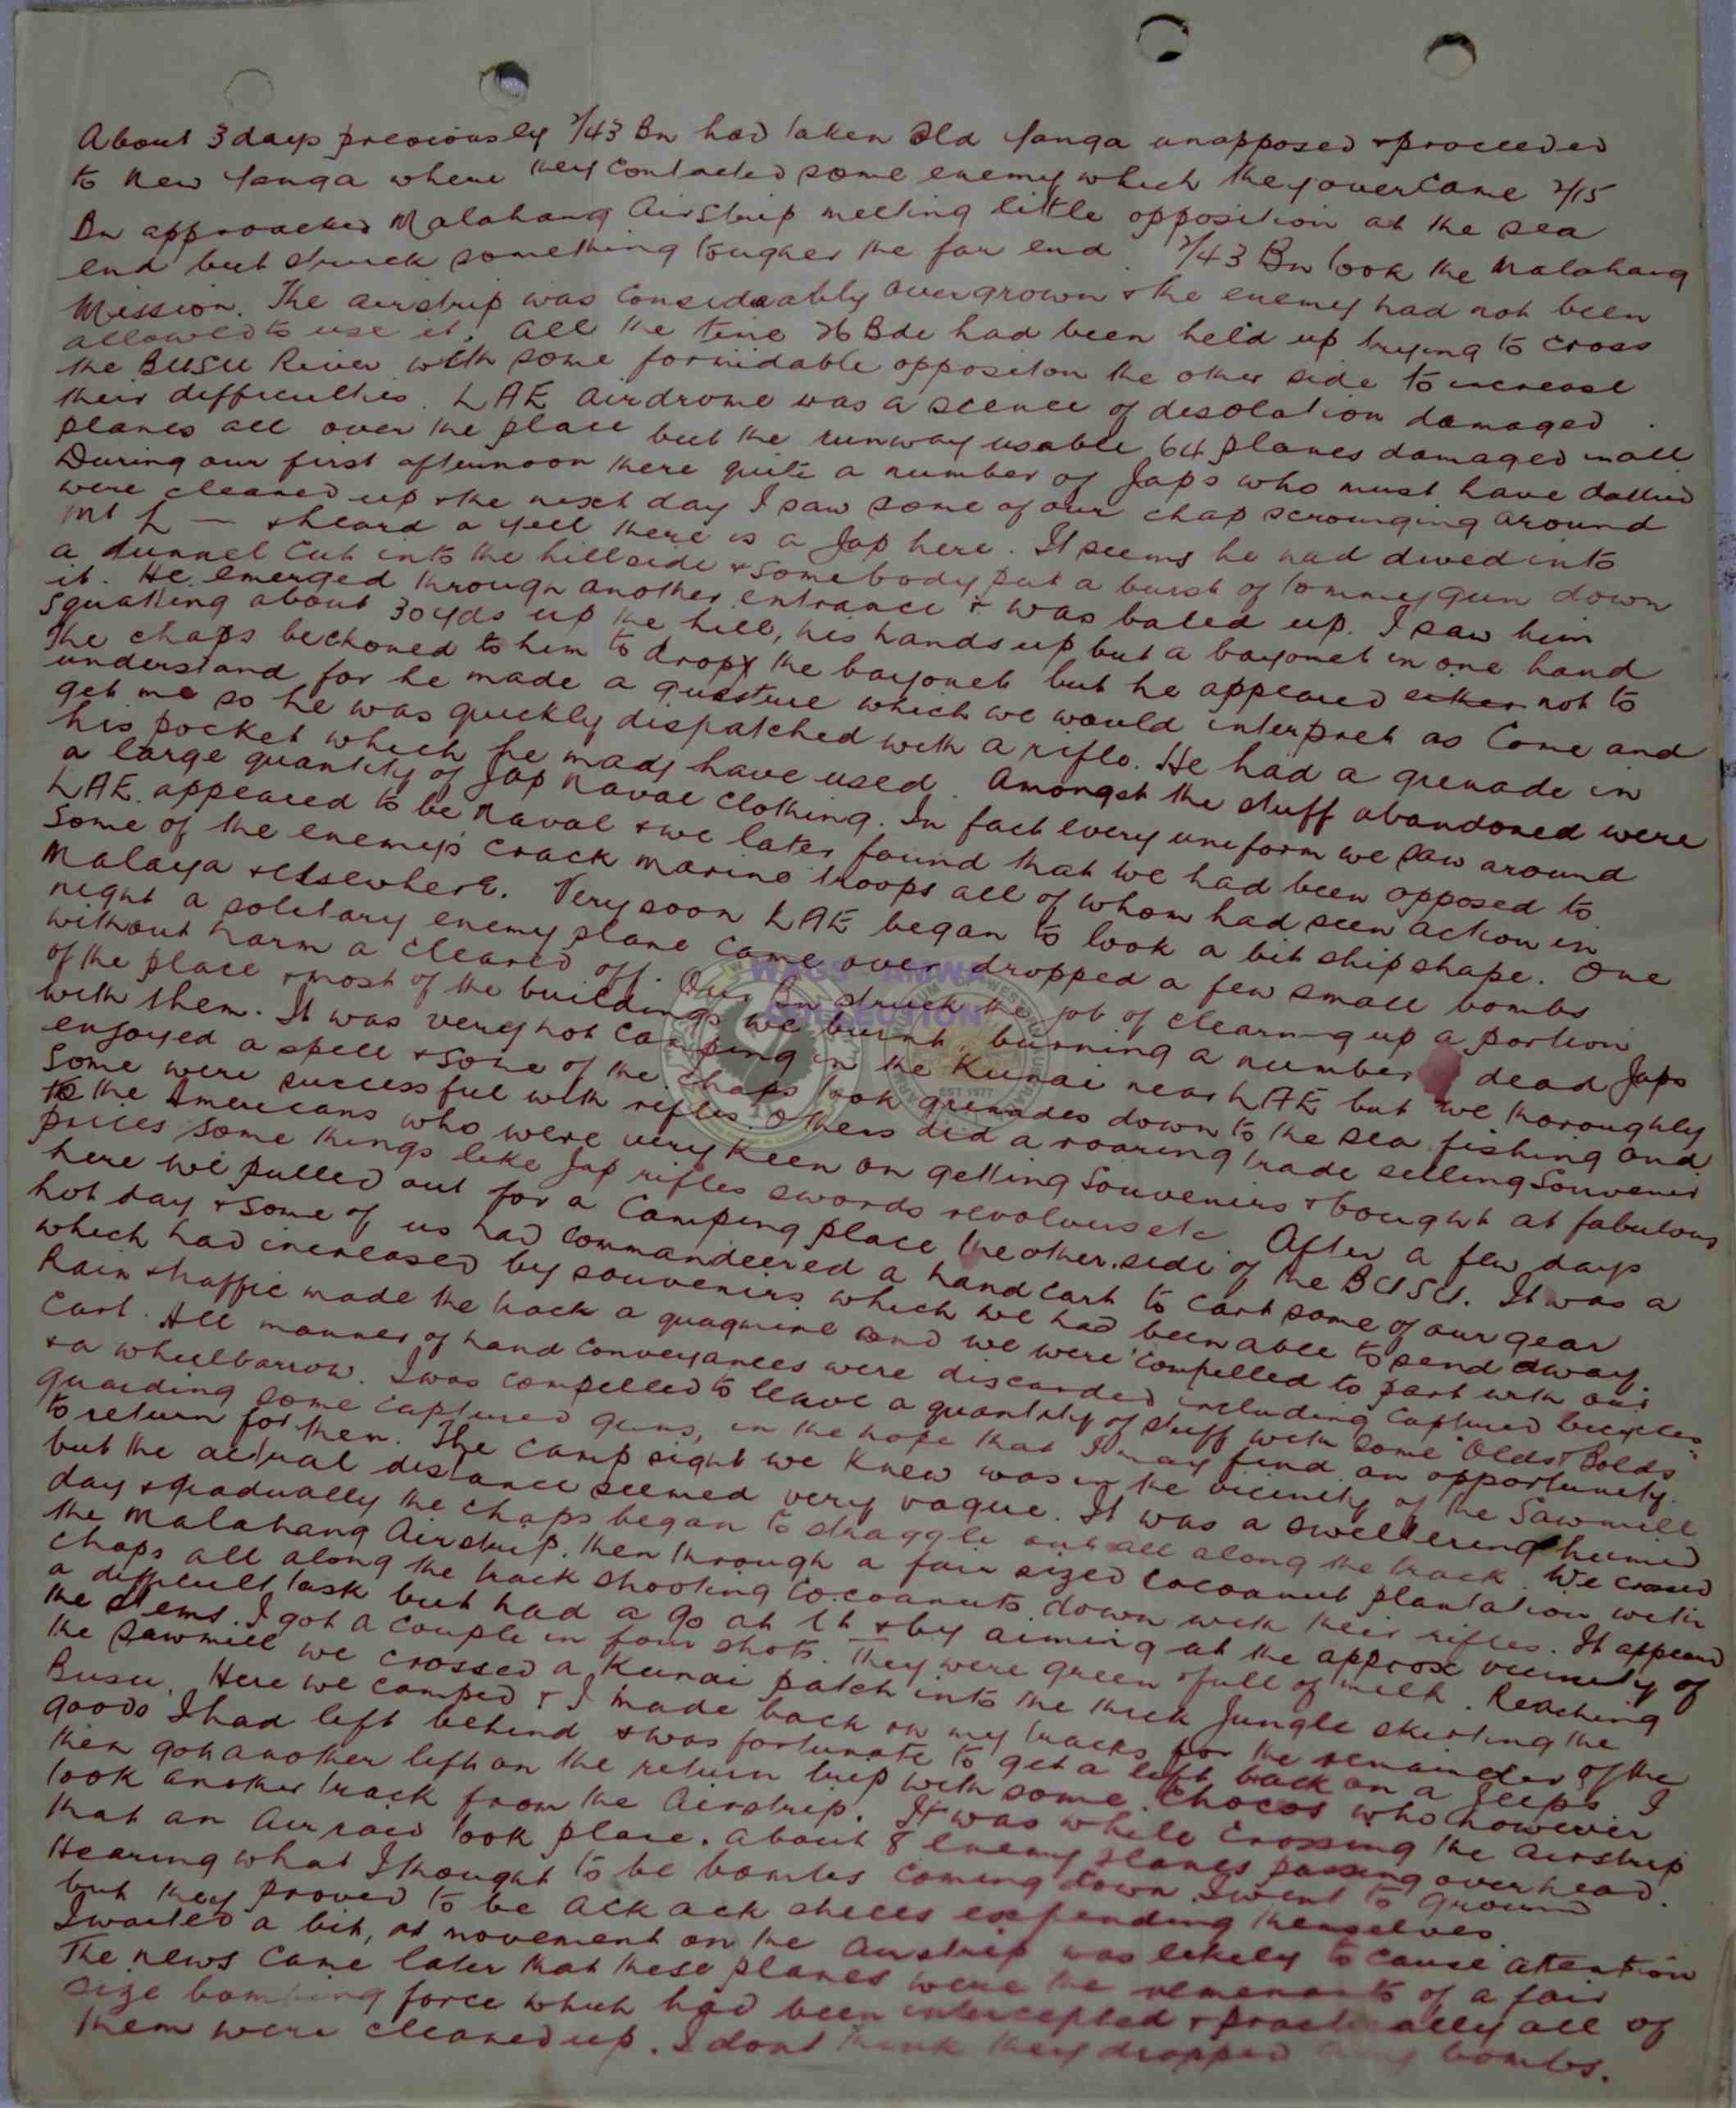 About 3 days previously 2/43 Bn had taken Old Yanga unapposed & proceeded
to New Yanga where they contacted some enemy which they overcame 2/15
Bn approached Malahang Airstrip meeting little opposition at the sea
end but struck something tougher the far end. 2/43 Bn took the Malahang
Mission. The airstrip was considerably overgrown & the enemy had not been
allowed to use it. All the time 26 Bde had been held up trying to cross
the BUSU River with some formidable oppositon the other side to increase
their difficulties. LAE airdrome was a scence of desolation damaged
planes all over the place but the runway usable 64 planes damaged in all.
During our first afternoon there quite a number of Japs who must have dallied
were cleaned up & the next day I saw some of our chap scrounging around
Mt L — & heard a yell there is a Jap here. It seems he had dived into
a tunnel cut into the hillside & somebody put a burst of tommy gun down
it. He emerged through another entrance & was baled up. I saw him
squatting about 30 yds up the hill, his hands up but a bayonet in one hand
The chaps beckoned to him to drop the bayonet but he appeared either not to
understand for he made a questure which we would interpret as Come and
get me so he was quickly dispatched with a rifle. He had a grenade in
his pocket which he may have used. Amongst the stuff abandoned were
a large quantity of Jap Naval clothing. In fact every uniform we saw around
LAE appeared to be Naval & we later found that we had been opposed to
some of the enemy's crack marine troops all of whom had seen action in
Malaya & elsewhere. Very soon LAE began to look a bit shipshape. One
night a solitary enemy plane came over dropped a few small bombs
without harm a cleared off. Our Bn struck the job of clearing up a portion
of the place & most of the buildings we burnt, burning a number dead Japs
with them. It was very hot camping in the Kunai near LAE but we thoroughly
enjoyed a spell & some of the chaps took grenades down to the sea fishing and
some were successful with rifles. Others did a roaring trade selling souvenir
to the Americans who were very keen on getting souvenirs & bought at fabulous
prices some things like Jap rifles swords revolvers etc. After a few days
here we pulled out for a camping place the other side of the BUSU. It was a
hot day & some of us had commandeered a handcart to cart some of our gear
which had increased by souvenirs which we had been able to send away.
Rain & traffic made the track a quagmire and we were compelled to part with our
cart. All manner of hand conveyances were discarded including captured bicycles
& a wheelbarrow. I was compelled to leave a quantity of stuff with some "Olds & Bolds"
guarding some captured guns, in the hope that I may find an opportunity
to return for them. The camp sight we knew was in the vicinity of the Sawmill
but the actual distance seemed very vague. It was a sweltering humid
day & gradually the chaps began to straggle out all along the track. We crossed
the Malahang Airstrip, then through a fair sized cocoanut plantation with
chaps all along the track shooting cocoanuts down with their rifles. It appeard
a difficult task but had a go at it & by aiming at the approx vicinity of
the stems. I got a couple in four shots. They were green & full of milk. Reaching
the sawmill we crossed a Kunai patch into the thick jungle skirting the
Busu. Here we camped & I made back on my tracks for the remainder of the
goods I had left behind & was fortunate to get a lift back on a Jeeps. I
then got another lift on the return trip with some Chocos who however
took another track from the Airstrip. It was while crossing the Airstrip
that an Air raid took place. About 8 enemy planes passing overhead.
Hearing what I thought to be bombs coming down I went to ground
but they proved to be ack ack shells expending themselves.
I waited a bit, as movement on the airstrip was likely to cause attention
The news came later that these planes were the remenants of a fair
size bombing force which had been intercepted & practically all of
them were cleaned up. I dont think they dropped any bombs.
WAGS AMWA
COLLECTION